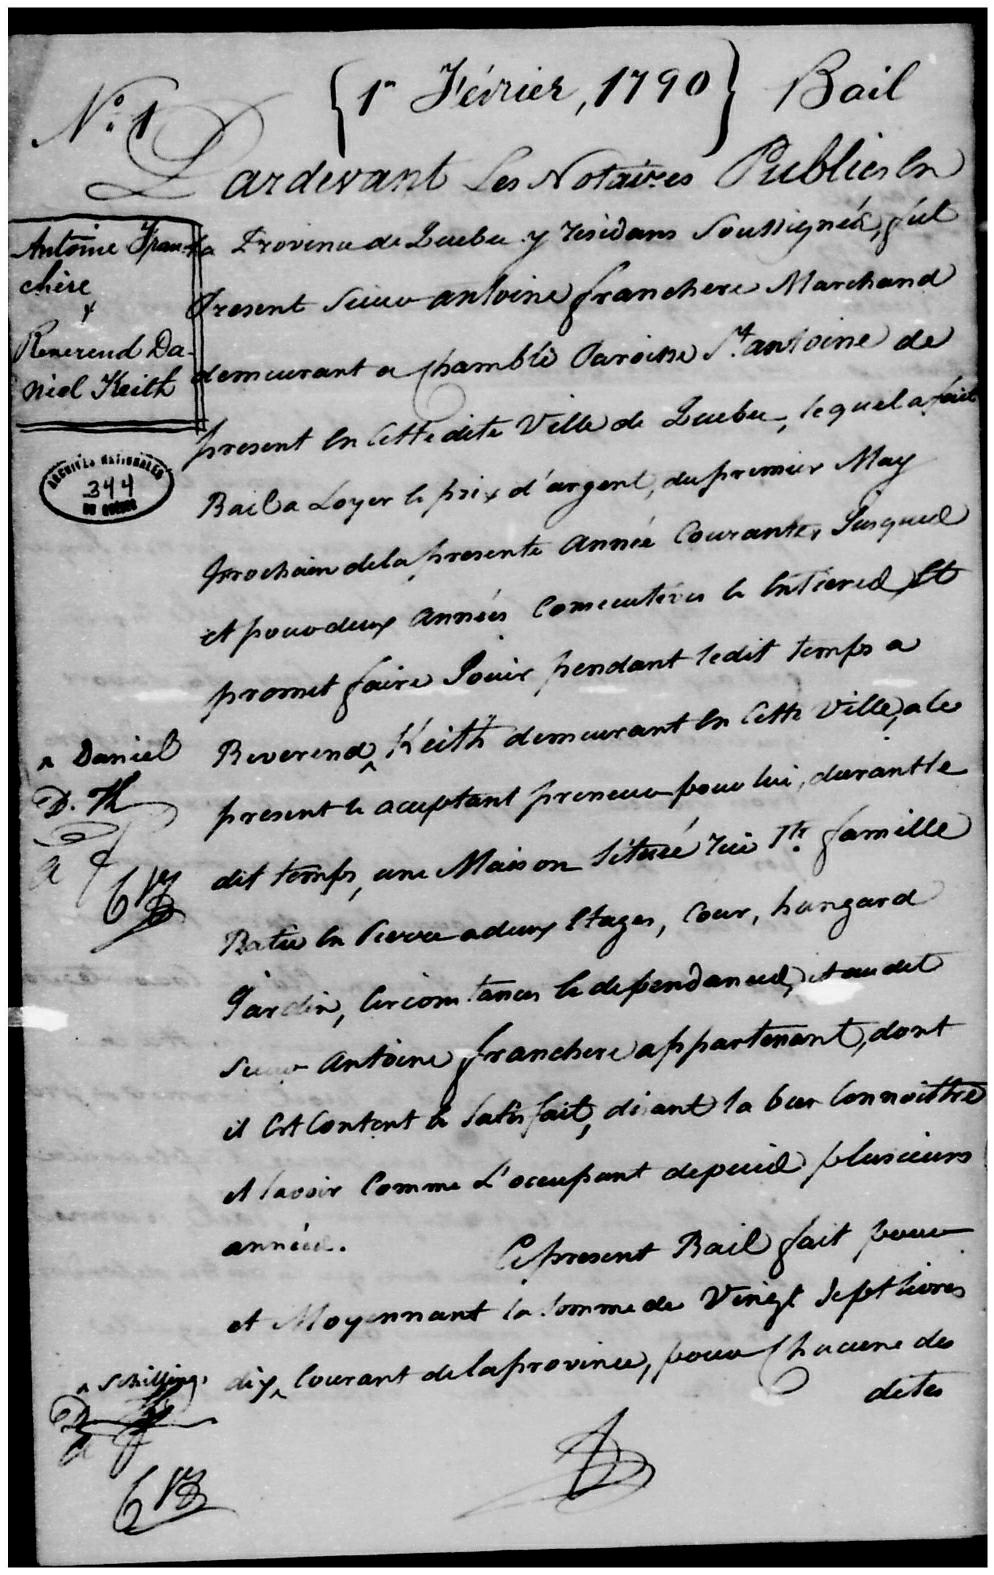 N.º 1 { 1r Février, 1790 } Bail
Pardevant Les Notaires Publics En
Antoine Fran-
chère
&
Reverend Da-
niel Keith
la Province de Quebec y residans Soussignés, fut
Present Sieur antoine franchere Marchand
demeurant a Chambli Paroisse St. antoine de
present En Cette dite Ville de Quebec, lequel a fait
ARCHIVES NATIONALES
344
DU QUÉBEC
Bail a Loyer & prix d'argent, du premier May
prochain de la presente Année Courante, Jusques
et pour deux Années Consecutives & Entieres Et
promet faire Jouir pendant ledit temps a
^ Daniel
D. K
Reverend ^ Keith demeurant En Cette Ville, a ce
present & acceptant preneur pour lui, durant le
dit temps, une Maison Située rue Ste. famille
Batie En Pierre a deux Etages, Cour, hangard
Jardin, Circomstances & dependances, et audit
Sieur Antoine franchere appartenant, dont
il Est Content & Satisfait, disant la bien Connoittre
et Savoir Comme L'occupant depuis plusieurs
années. Ce present Bail fait pour
et Moyennant la Somme de Vingt Sept livres
^ Schillings
dix ^ Courant de la province, pour Chacune des
dites